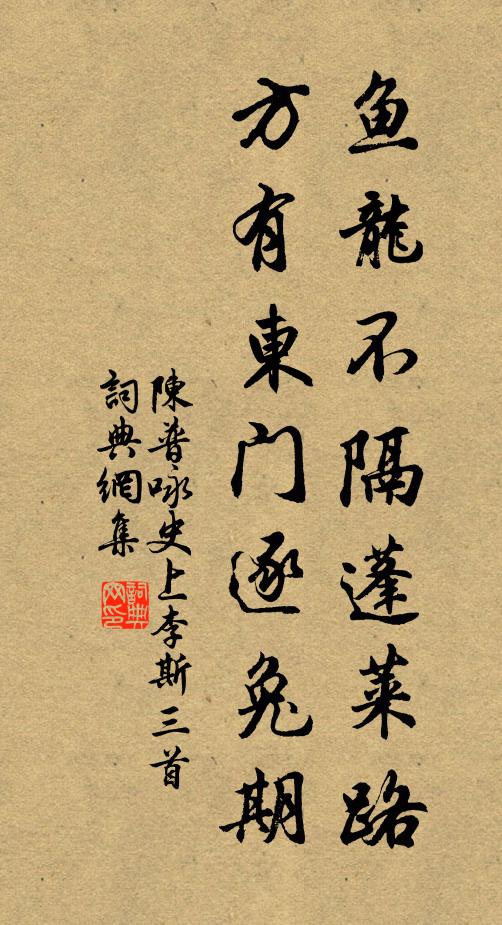 鱼龍不隔蓬莱路
方有東门逐兔期
陳普咏史上李斯三首
詞典網集
詞典网印